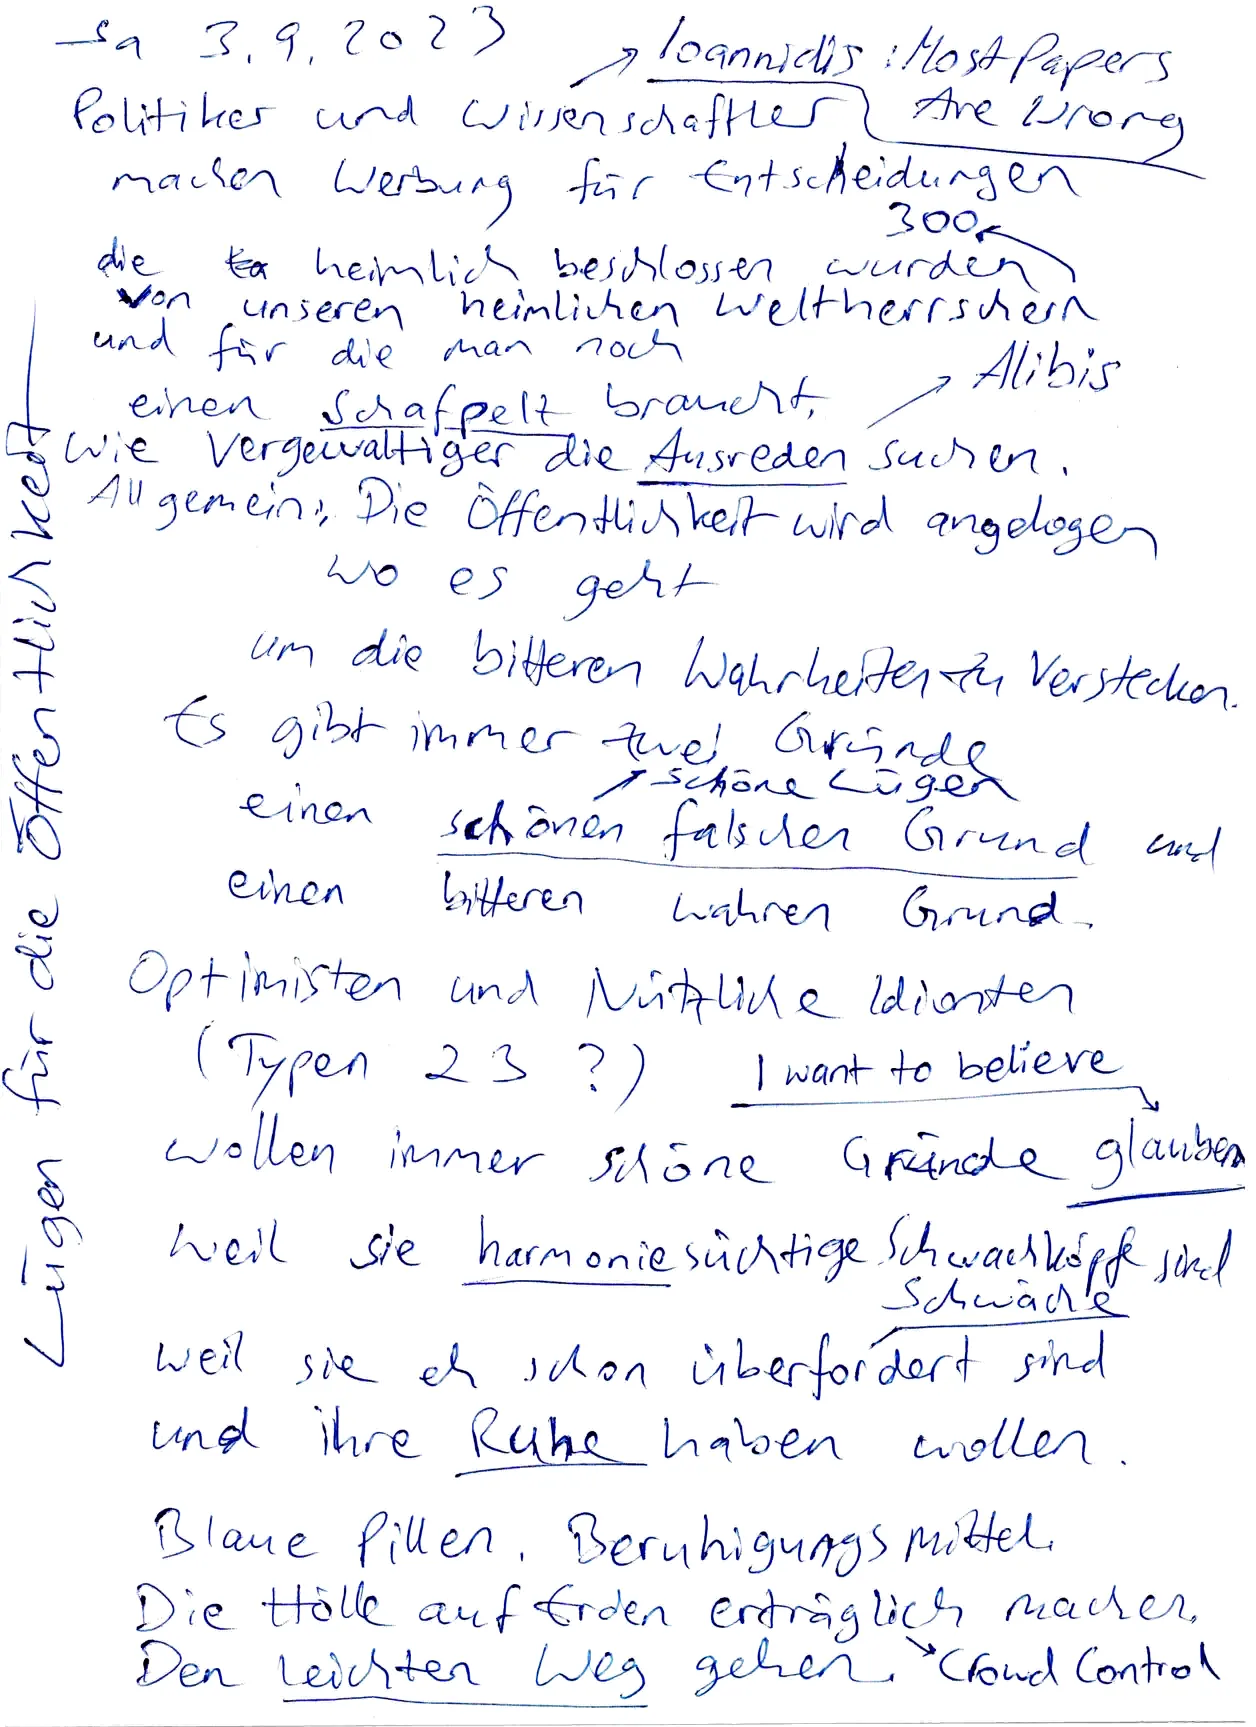 Sa 3.9.2023
→ Ioannidis: Most Papers
Are Wrong
Politiker und Wissenschaftler
machen Werbung für Entscheidungen
300
die heimlich beschlossen wurden
von unseren heimlichen Weltherrschern
und für die man noch
→ Alibis
einen Schafpelz braucht.
Wie Vergewaltiger die Ausreden suchen.
Allgemein: Die Öffentlichkeit wird angelogen
wo es geht
um die bitteren Wahrheiten zu verstecken.
Es gibt immer zwei Gründe
→ schöne Lügen
einen schönen falschen Grund und
einen bitteren wahren Grund.
Optimisten und Nützliche Idioten
(Typen 2 3 ?) I want to believe
wollen immer schöne Gründe glauben
weil sie harmoniesüchtige Schwachköpfe sind
Schwäche
weil sie eh schon überfordert sind
und ihre Ruhe haben wollen.
Blaue Pillen. Beruhigungsmittel.
Die Hölle auf Erden erträglich machen.
Den leichten Weg gehen. → Crowd Control
Lügen für die Öffentlichkeit